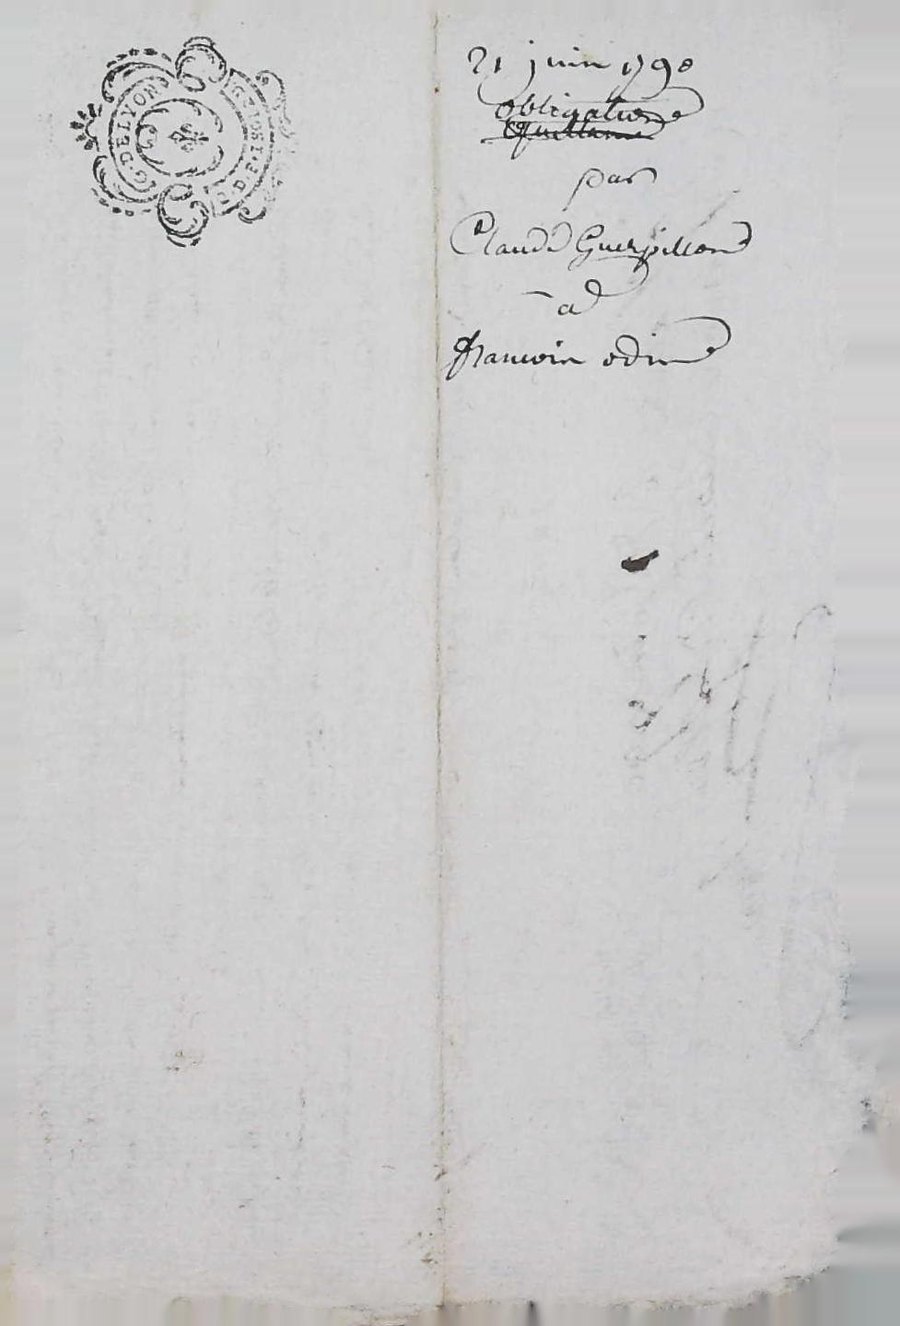 G. DE LYON
21 juin 1790
obligation
Quittance
par
Claude Guerpillon
à
francois odin